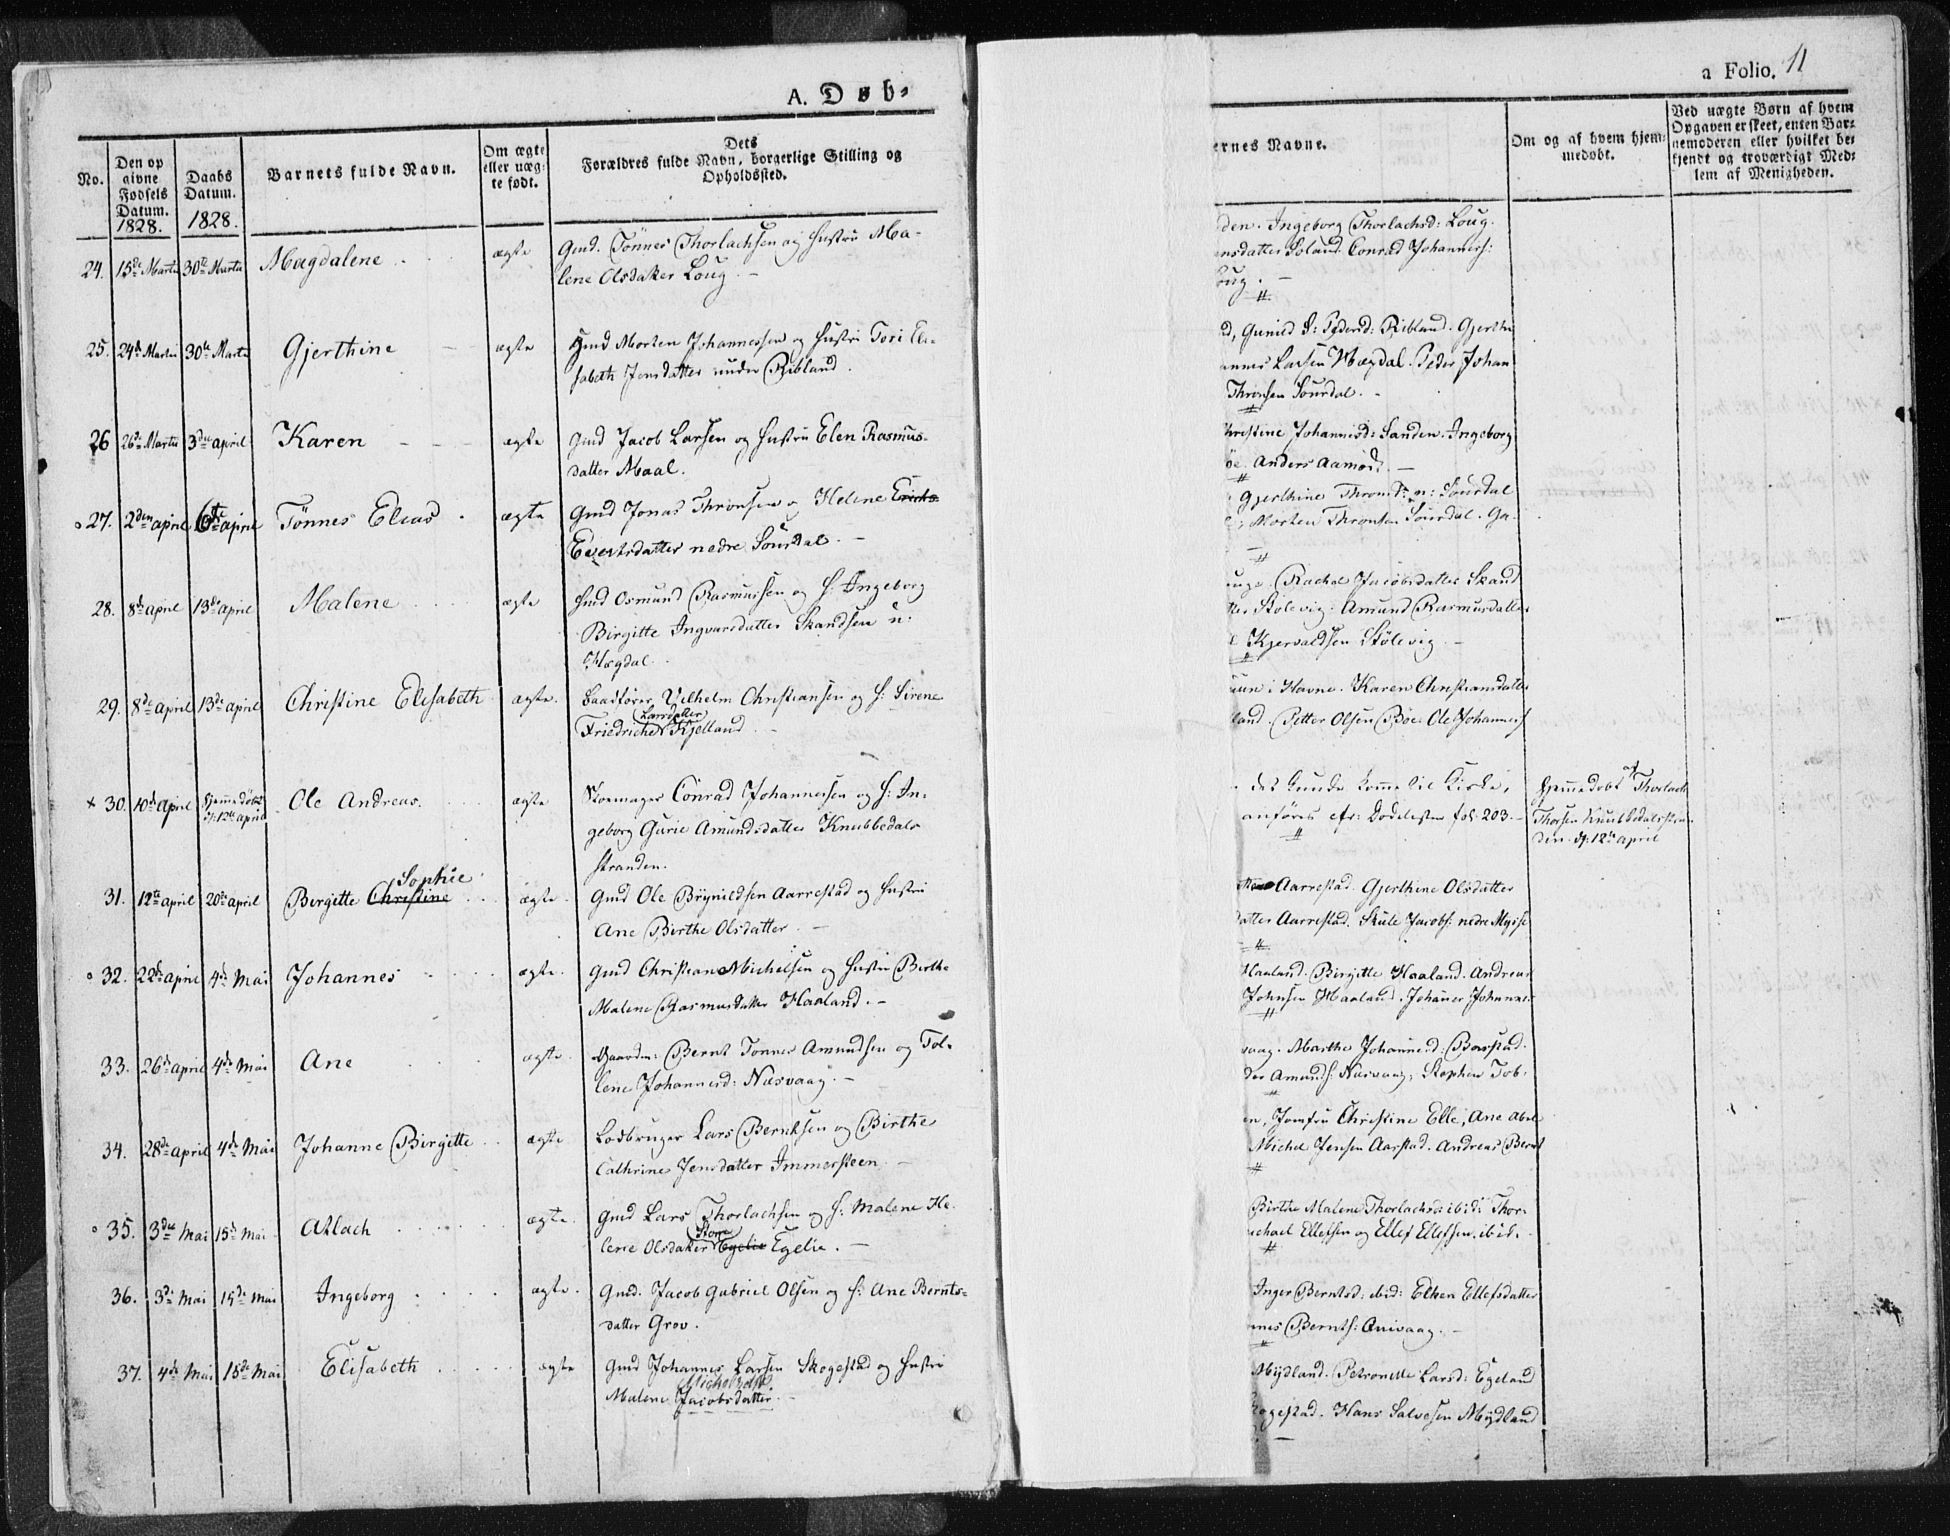 A. Døb=
No.
Den op
givne
Fødsels
Datum.
1828.
Daabs
Datum.
1828.
Barnets fulde Navn.
Om ægte
eller uæg=
te født.
Dets
Forældres fulde Navn, borgerlige Stilling og
Opholdssted.
24. 15de Martii 30te Martii Magdalene ægte Gmd. Tönnes Thorlachsen og Hustru Ma-
lene Olsdatter Loug. -
25. 24de Martii 30te Martii Gjerthine ægte Gmd Morten Johannessen og Hustru Tori Eli-
sabeth Jensdatter under Ribland.
26 26de Martii 3die april Karen ægte Gmd Jacob Larsen og Hustru Elen Rasmus-
datter Maal.
27. 2den april 6te april Tönnes Elias ægte Gmd Jonas Thronsen og Helene Erichs
Evertsdatter nedre Sourdal. -
28. 8de april 13de april Malene ægte Gmd Osmund Rasmussen og H: Ingeborg
Birgitte Ingvarsdatter Skandsen u:
Hægdal.
29. 8de april 13de april Christine Elisabeth ægte. Baadfører Vilhelm Christiansen og H: Sirene
Larsdatter
Friedriche Kjelland
× 30. 10de April Hjemmedöbt
d: 12te april Ole Andreas. ægte Skoemager Conrad Johannessen og H: In-
geborg Gurie Amundsdatter Knubbedals
stranden.
Sophie
31. 12te april 20de april Birgitte Christine ægte. Gmd Ole Brynildsen Aarrestad og Hustru
Ane Birthe Olsdatter. -
32. 22de april 4de Mai Johannes ægte. Gmd Christian Michelsen og Hustru Birthe
Malene Rasmusdatter Haaland. -
33. 26de april 4de Mai Ane ægte. Gaardm: Bernt Tonnes Amundsen og Tol-
lene Johannesd: Næsvaag. -
34. 28de april 4de Mai Johanne Birgitte ægte Lodbruger Lars Berntsen og Birthe
Cathrine Jensdatter Immersteen. -
35. 3die Mai 15de Mai Atlach ægte. Gmd Lars Thorlachsen og H: Malene He-
Store
lene Olsdatter Egelie Egelie. -
36. 3die Mai 15de Mai Ingeborg ægte. Gmd. Jacob Gabriel Olsen og H: Ane Bernts-
datter Grov.
37. 4de Mai 15de Mai Elisabeth ægte Gmd Johannes Larsen Skogestad og Hustru
Malene Jacobsdatter
a Folio. 11
ernes Navne.
Om og af hvem hjem=
medøbt.
Ved uægte Børn af hvem
Opgaven er skeet, enten Bar=
nemoderen eller hvilket be=
kjendt og troværdigt Med=
lem af Menigheden.
den. Ingeborg Thorlachsd: Loug.
nsdatter Soland. Conrad Johanness:
oug. -
Gunild S: Pedersd: Ribland. Gjerthi
annes Larsen Hægdal. Peder Johan
Thronsen Sourdal. -
hristine Johannisd: Sanden. Ingeborg
Anders Aamöd. -
Gjerthine Thronsd: n: Sourdal
Morten Thronsen Sourdal. Ga-
unge. Rachel Jacobsdatter Skand
Stolevig. Amund Rasmusdatter
Kjervaldsen Stölevig. -
i Havne. Karen Christiansdatter
land. Petter Olsen Böe. Ole Johanness
det kunde komme til Kirke,
anføres cfr: Dödelisten fol: 203. -
Hjemmedobt af Thorlach
Thorsen Knubbedalsstran-
den. d: 12te april
Aarrestad. Gjerthine Olsdatter
datter Aarrestad. Skule Jacobs: nedre Mysse
Haaland. Birgitte Haaland. Andreas
Johnsen Haaland. Johannes Johannes
vaag. Marthe Johannesd: Barstad.
der Amunds: Næsvaag, Stephen Tob-
en, Jomfru Christine Elle, Ane Abel
Michel Jensen Aarstad. Andreas Bernt
Birthe Malene Thorlachsd ibid: Thor-
ichael Ellefsen og Ellef Ellefsen. ibid.
Inger Berntsd: ibid: Elken Ellefsdatter
nnes Bernts: Anivaag. -
Mydland. Petronelle Larsd: Egeland
kogestad. Hans Salvesen Mydland